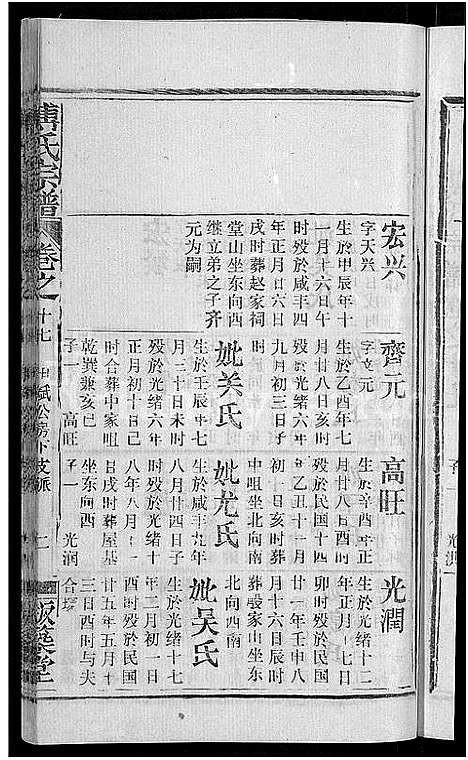 宏兴
字天兴
生於甲辰年十
一月十六日午
时殁於咸丰四
年正月廿六日
戌时葬赵家祠
堂山坐东向西
继立弟之子齐
元为嗣
齊元
字文元
生於乙酉年七
月廿八日亥时
殁於光绪六年
九月初三日子
时
妣关氏
生於壬辰年七
月二十日未时
殁於光绪六年
正月初十日巳
时合葬中家咀
乾巽兼亥巳
子一 高旺
高旺
生於辛酉年正
月廿八日酉时
殁於民国十四
年乙丑十一月
初一日亥时葬
中咀坐北向南
妣尤氏
生於咸丰九年
八月廿四日子
时殁於光绪十
八年八月初一
日戌时葬屋基
坐东向西
子一 光润
光潤
生於光绪十二
年正月十七日
卯时殁於民国
廿一年壬申八
月十六日辰时
葬殷家山坐东
北向西南
妣吴氏
生於光绪十七
年二月初一日
酉时殁於民国
廿五年五月十
三日酉时与夫
合塚
傅氏宗譜
卷之十七
公房下支脈
二